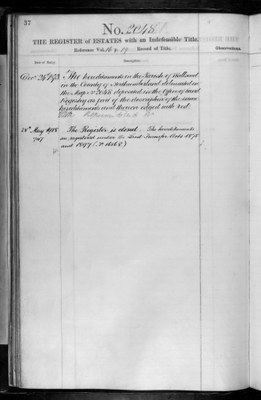 37
No. 2048
THE REGISTER of ESTATES with an Indefeasible Title.
Reference Vol. 16 19. Record of Title.
Date of Entry.
Description
Observations.
The hereditaments in the Parish of
in the County of Northumberland delineated on
the Map No. 2048 deposited in the Office of Land
Registry as part of the description of the same
hereditaments and thereon edged with red.
May 1908
The Register is closed. The hereditaments
are registered under the Land Transfer Acts 1875
and 1897